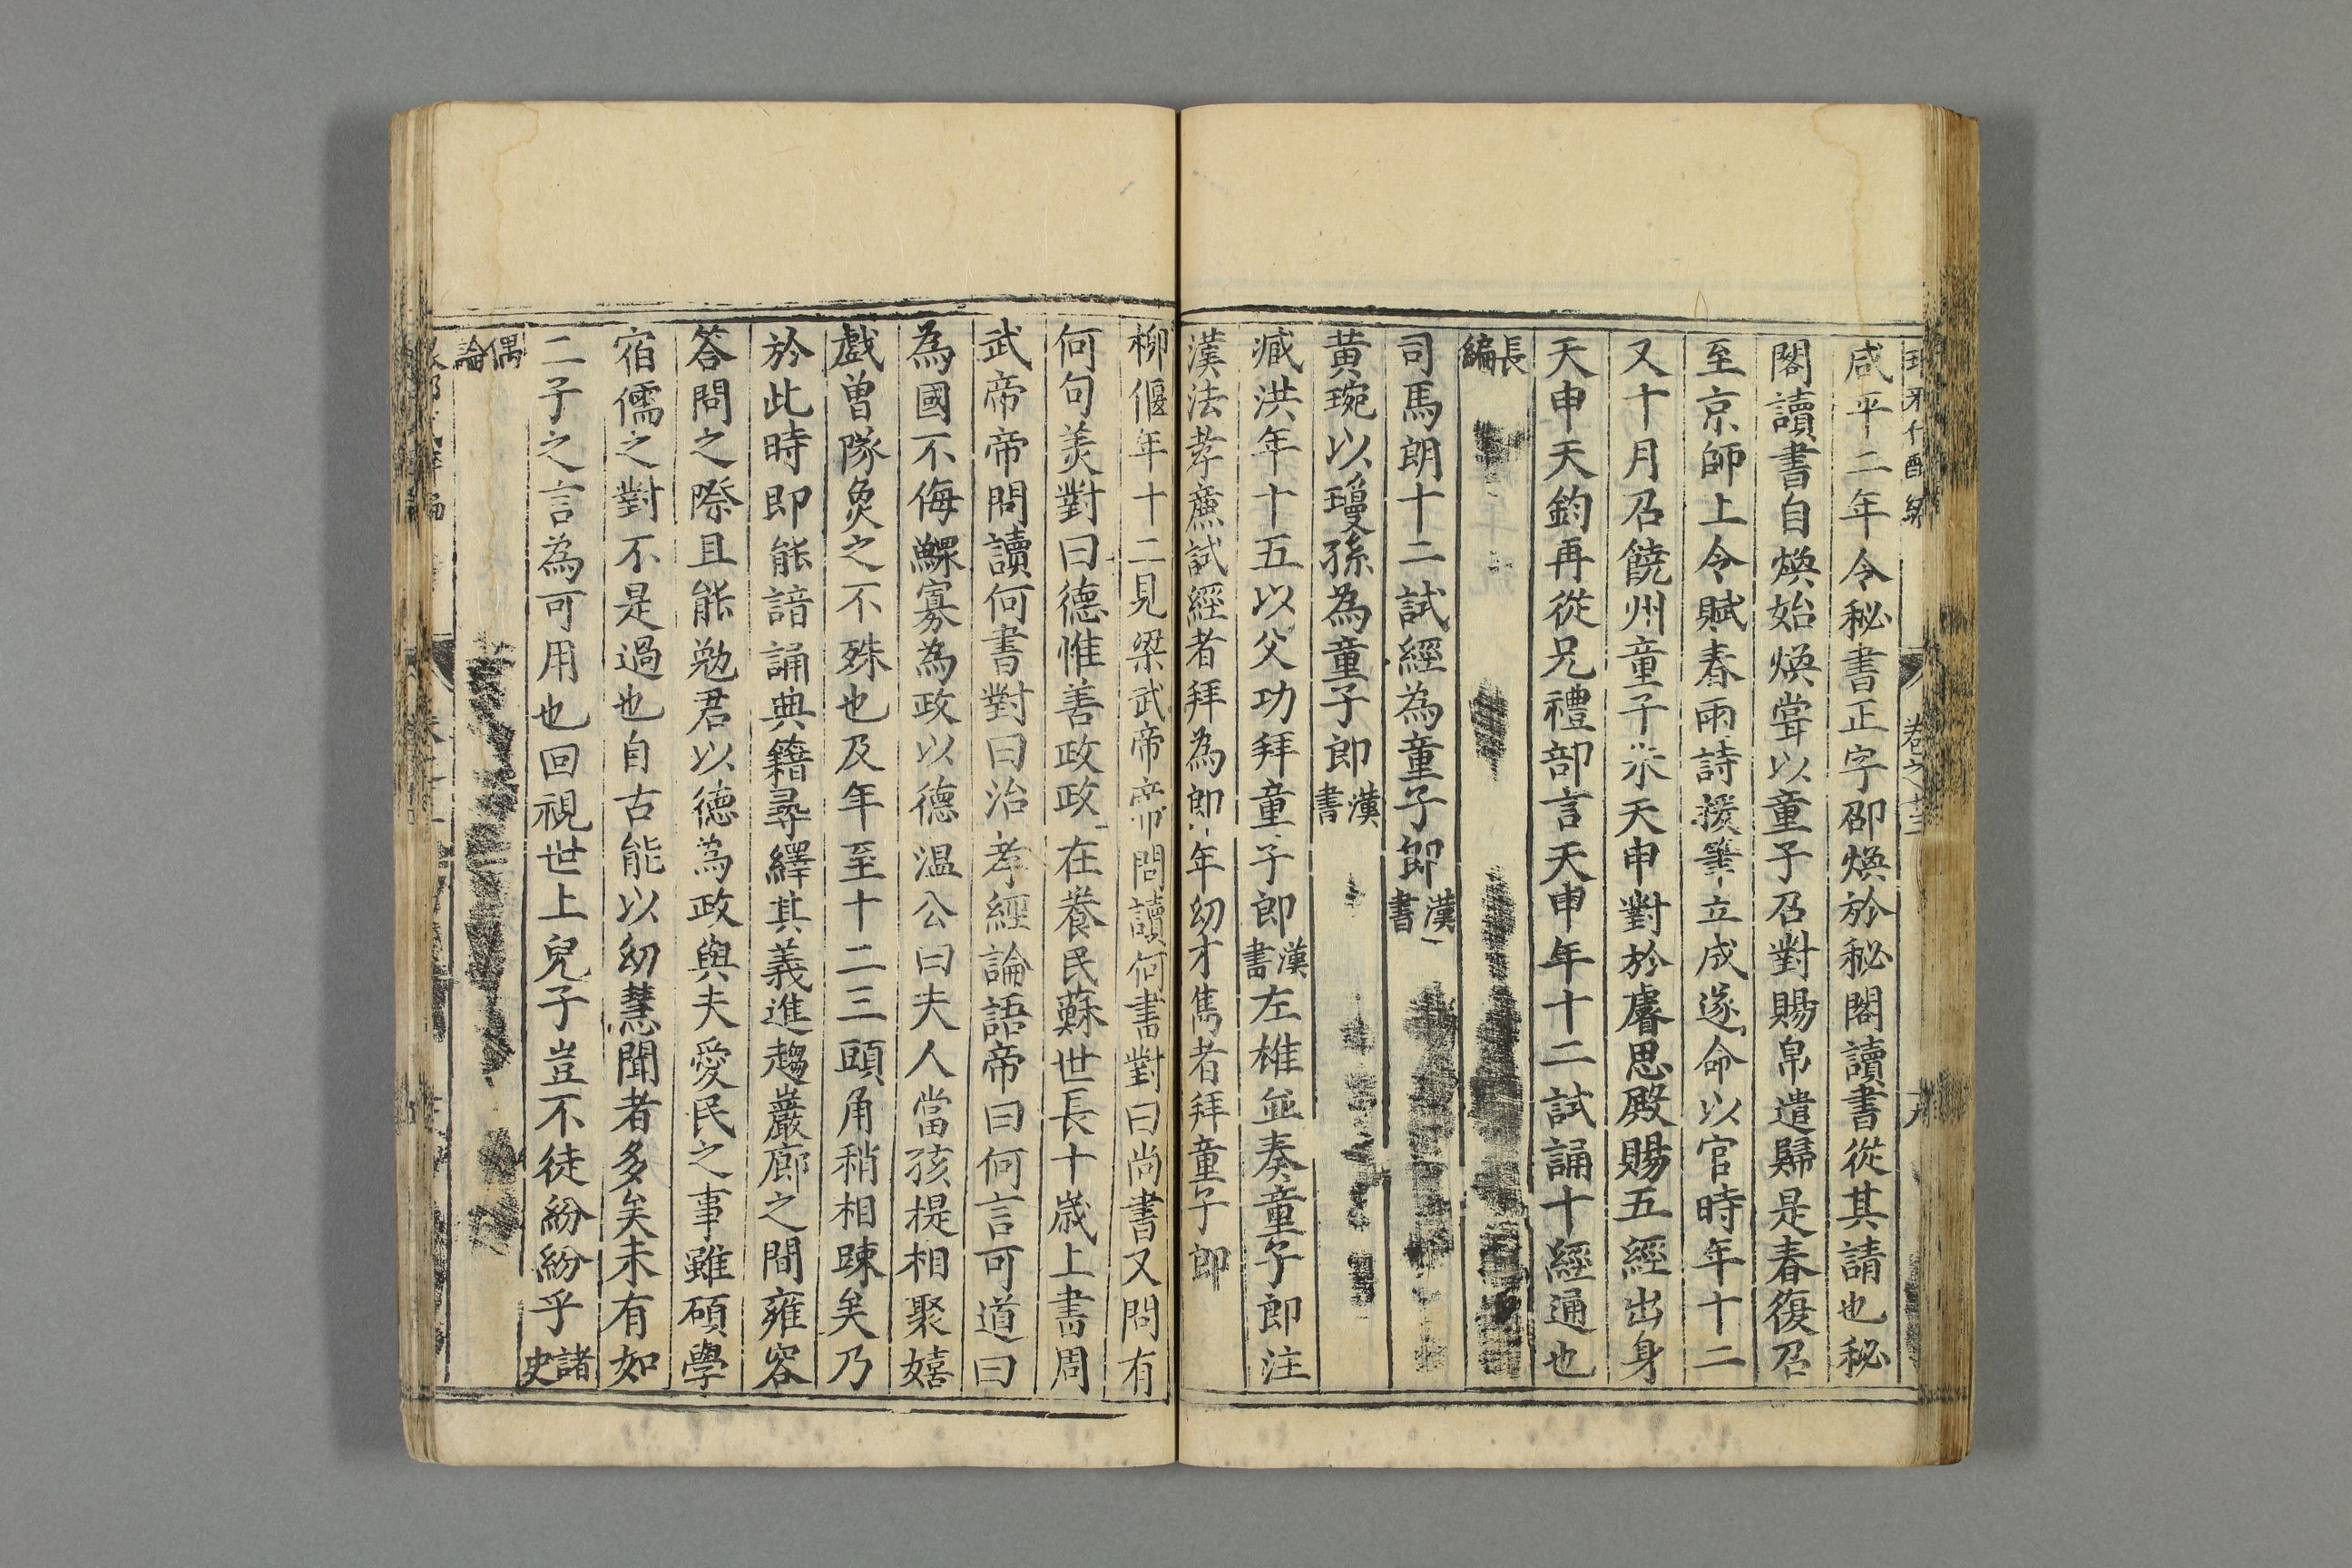 咸平二年令秘書正字邵煥於秘閣讀書從其請也秘
閣讀書自煥始煥甞以童子召對賜帛遣歸是春復召
至京師上令賦春雨詩援筆立成遂命以官時年十二
又十月召饒州童子朱天申對於睿思殿賜五經出身
天申天鈞再從兄禮部言天申年十二試誦十經通也
長編
司馬朗十二試經為童子郎漢書
黃琬以瓊孫為童子郎漢書
臧洪年十五以父功拜童子郎漢書左雄並奏童子郎注
漢法孝廉試經者拜為郎年幼才雋者拜童子郎
柳偃年十二見梁武帝帝問讀何書對曰尚書又問有
何句美對曰德惟善政政在養民蘇世長十歲上書周
武帝帝問讀何書對曰治孝經論語帝曰何言可道曰
為國不侮鰥寡為政以德温公曰夫人當孩提相聚嬉
戲曽隊魚之不殊也及年至十二三頭角稍相踈矣乃
於此時即能諳誦典籍尋繹其義進趨巖廊之間雍容
答問之際且能勉君以德為政與夫愛民之事雖碩學
宿儒之對不是過也自古能以幼慧聞者多矣未有如
二子之言為可用也回視世上兒子豈不徒紛紛乎諸史
偶論